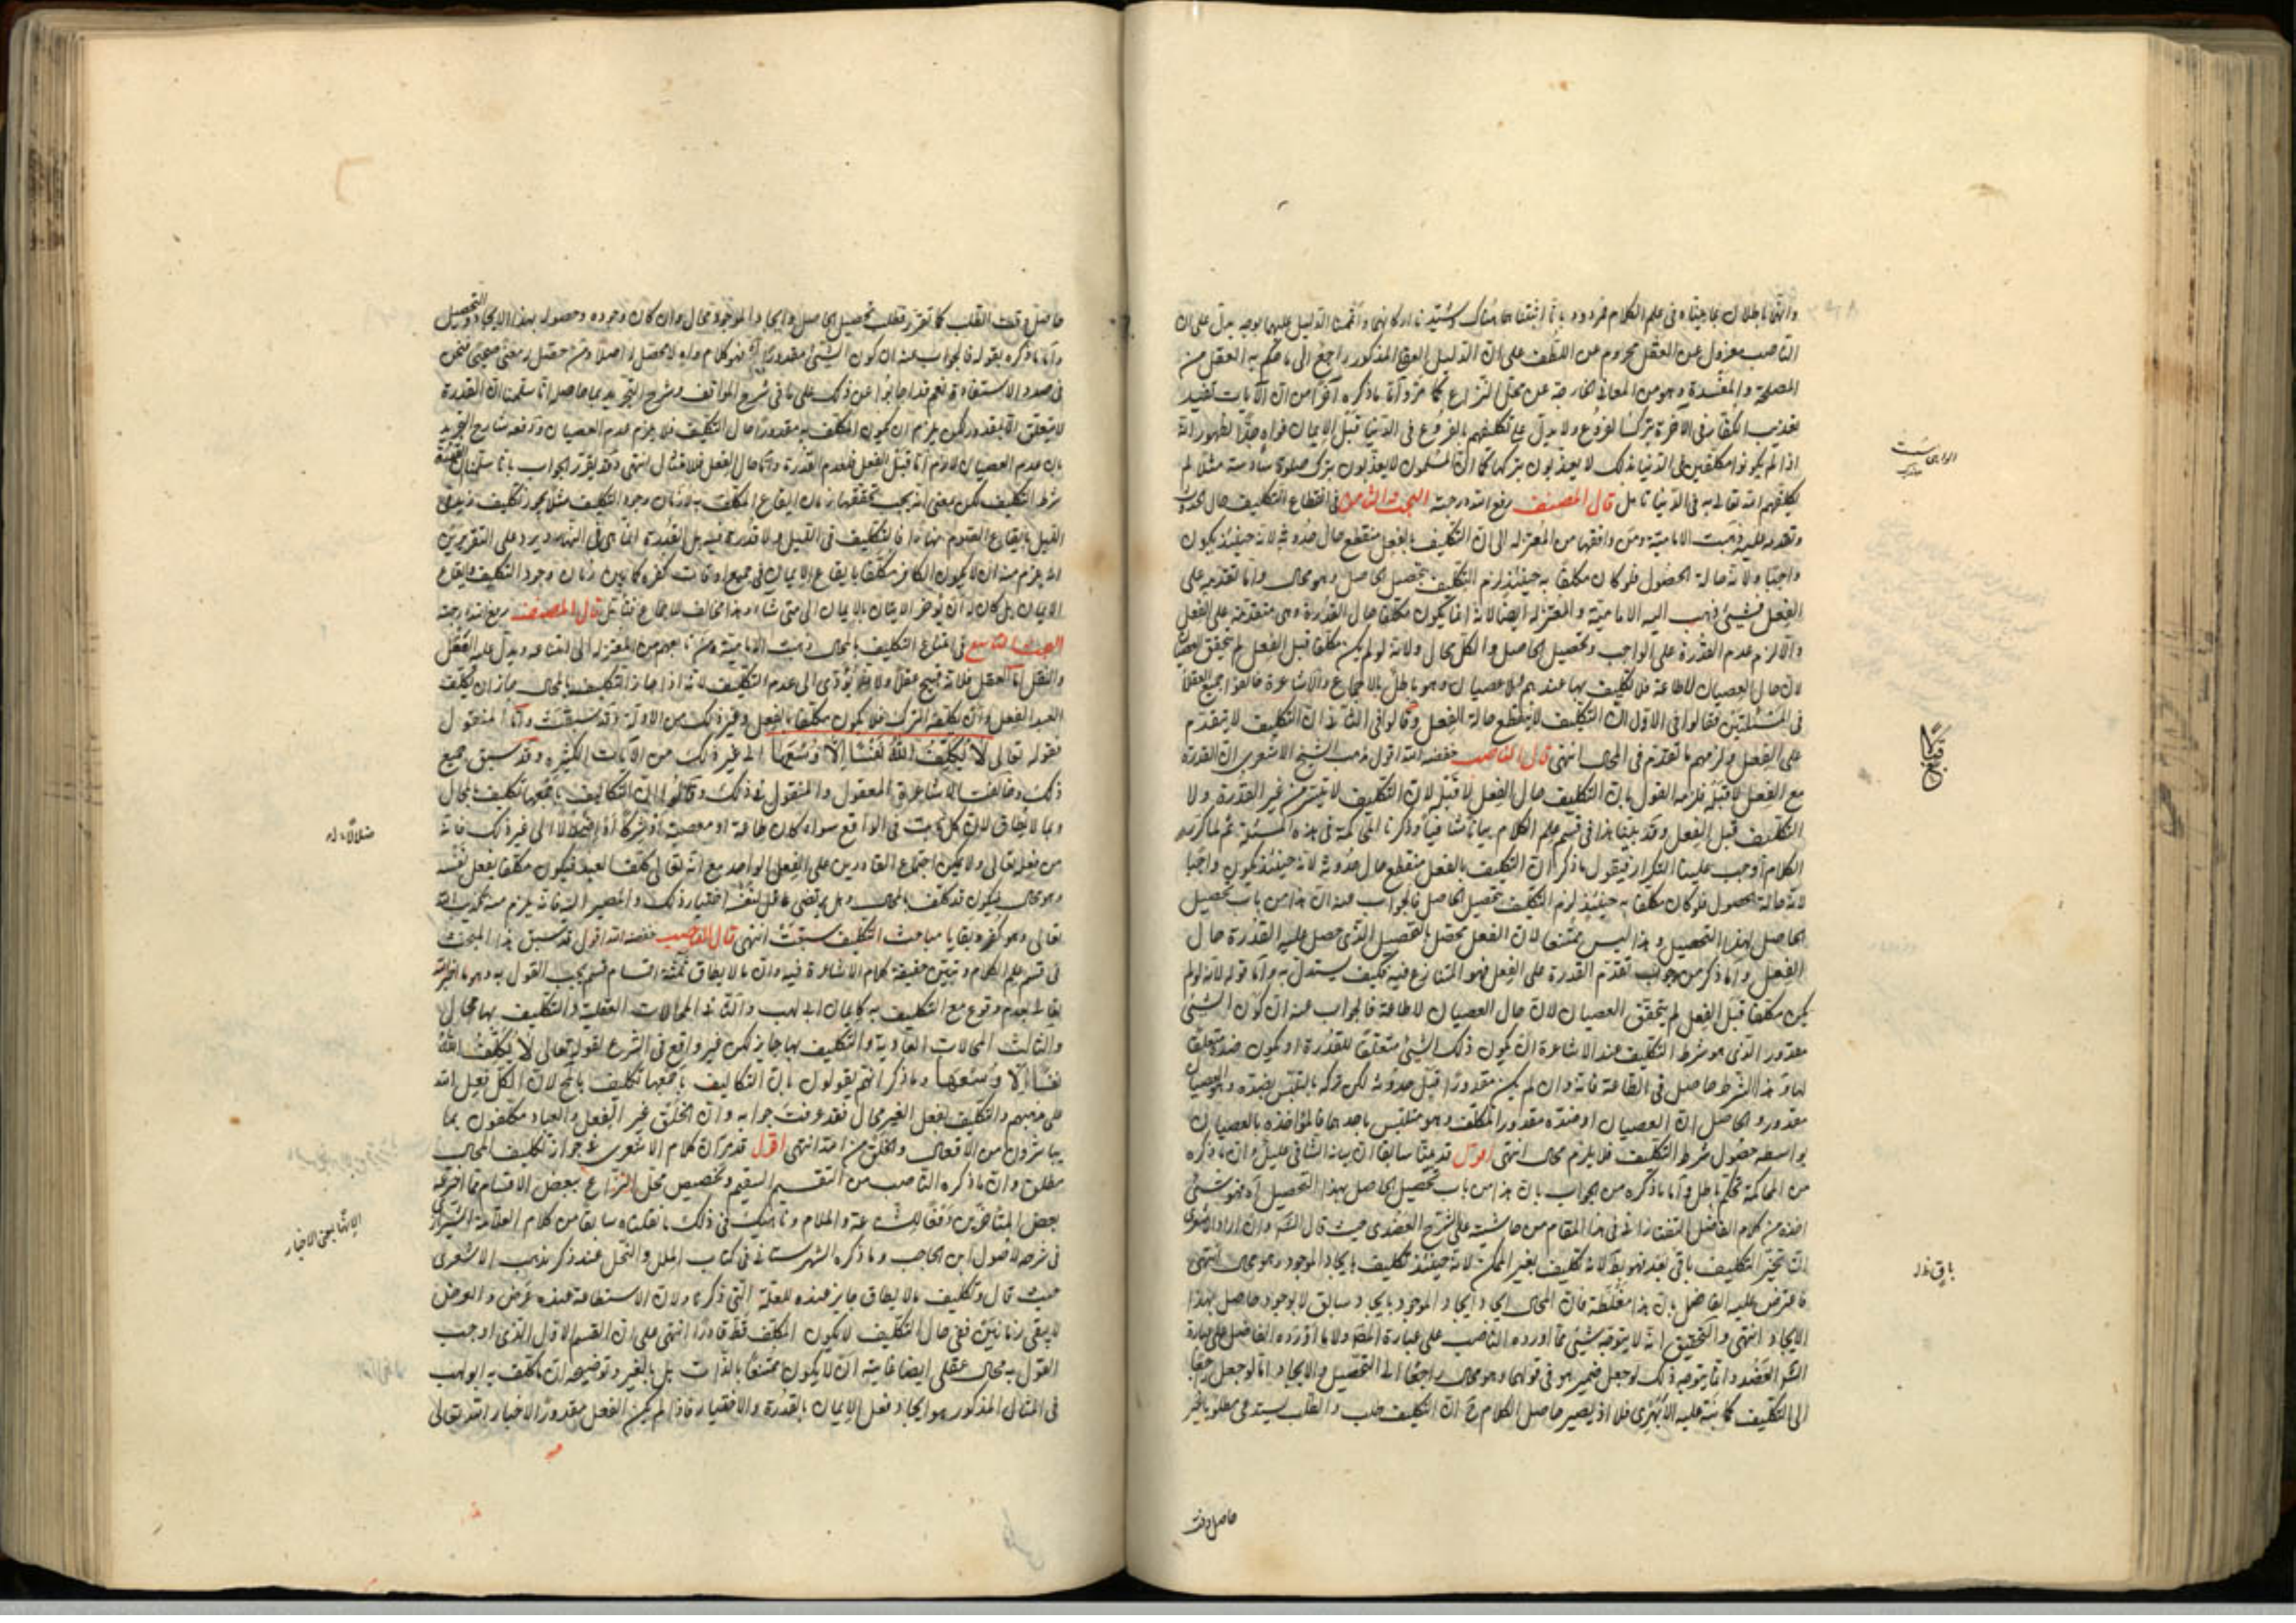 وانها باطلان بما بيناه في علم الكلام فمردود بانا اثبتنا هناك وشيدنا اركانهما واقمنا الدليل عليهما بوجه يدل على ان
الناصب معزول عن العقل محروم عن اللطف على ان الدليل العقلي المذكور راجع الى ما حكم به العقل من
المصلحة والمفسدة وهو من المعاني الخارجة عن محل النزاع كما مر واما ما ذكره آخرا من ان الآيات تفيد
تعذيب الكفار في الآخرة بترك الفروع ولا يدل على تكليفهم بالفروع في الدنيا قبل الايمان فواه جدا لظهور انه
اذا لم يكونوا مكلفين في الدنيا بذلك لا يعذبون بتركها كما ان المسلمون لا يعذبون بترك صلوة سادسة مثلا لم
يكلفهم الله تعالى به في الدنيا تامل قال المصنف رفع الله درجته البحث الثامن في انقطاع التكليف حال الحدوث
وتقدمه عليه ذهبت الامامية ومن وافقها من المعتزلة الى ان التكليف بالفعل منقطع حال حدوثه لانه حينئذ يكون
واجبا ولانه حالة الحصول فلو كان مكلفا به حينئذ لزم التكليف بتحصيل الحاصل وهو محال واما تقدمه على
الفعل فشيء ذهب اليه الامامية والمعتزلة ايضا لانه انما يكون مكلفا حال القدرة وهي متقدمة على الفعل
والا لزم عدم القدرة على الواجب وتحصيل الحاصل والكل محال ولانه لو لم يكن مكلفا قبل الفعل لم يتحقق العصيان
لان حال العصيان لا طاعة فلا تكليف بها عندهم فلا عصيان وهو باطل بالاجماع والاشاعرة خالفوا جميع العقلاء
في المسئلتين فقالوا في الاول ان التكليف لا ينقطع حالة الفعل وقالوا في الثاني ان التكليف لا يتقدم
على الفعل ولزمهم ما تقدم في المحال انتهى قال الناصب خفضه الله اقول مذهب الشيخ الاشعري ان القدرة
مع الفعل لا قبله فلزمه القول بان التكليف حال الفعل لا قبله لان التكليف لا يتيسر من غير القدرة ولا
التكليف قبل الفعل وقد بينا هذا في قسم علم الكلام بيانا شافيا وذكرنا المحاكمة في هذه المسئلة ثم لما كرر
الكلام اوجب علينا التكرار فيقول ما ذكر ان التكليف بالفعل منقطع حال حدوثه لانه حينئذ يكون واجبا
لانه حالة الحصول فلو كان مكلفا به حينئذ لزم التكليف بتحصيل الحاصل فالجواب عنه ان هذا من باب تحصيل
الحاصل بهذا التحصيل وهذا ليس بممتنع لان الفعل يحصل بالتحصيل الذي حصل عليه القدرة حال
الفعل واما ذكر من وجوب تقدم القدرة على الفعل فهو المتنازع فيه فكيف يستدل به واما قوله لانه لو لم
يكن مكلفا قبل الفعل لم يتحقق العصيان لان حال العصيان لا طاعة فالجواب عنه ان كون الشيء
مقدور الذي هو شرط التكليف عند الاشاعرة ان يكون ذلك الشيء متعلقا للقدرة او يكون ضده متعلقا
لها وهذا الشرط حاصل في الطاعة فانه وان لم يكن مقدورا قبل حدوثه لكن تركه بالتلبس بضده وهو العصيان
مقدور والحاصل ان العصيان او ضده مقدور المكلف وهو متلبس باحدهما فالمؤاخذة بالعصيان
بواسطة حصول شرط التكليف فلا يلزم محال انتهى اقول قد بينا سابقا ان بيانه الشافي عليل وان ما ذكره
من المحاكمة تحكم باطل واما ما ذكره من الجواب بان هذا من باب تحصيل الحاصل بهذا التحصيل آه فهو شيء
اخذه من كلام الفاضل التفتازاني في هذا المقام من حاشيته على شرح العضدي حيث قال الشارح وان اراد الاشعري
ان تنجيز التكليف باق بعد فهو بط لانه تكليف بغير الممكن لانه حينئذ تكليف بايجاد الموجود وهو محال انتهى
فاعترض عليه الفاضل بان هذا مغلطة فان المحال ايجاد ايجاد الموجود بايجاد سابق لا بوجود حاصل بهذا
الايجاد انتهى والتحقيق انه لا يتوجه شيء مما اورده الناصب على عبارة المصنف ولا ما اورده الفاضل على عبارة
الشارح العضد وانما يتوجه ذلك لو جعل ضمير هو في قولهما وهو محال راجعا الى التحصيل والايجاد واما لو جعل راجعا
الى التكليف كما نبه عليه الابهري فلا اذ يصير حاصل الكلام ح ان التكليف طلب والطلب يستدعي مطلوبا غير
حاصل وقت
باق خ ل
حاصل وقت الطلب كما تقرر فطلب تحصيل الحاصل وايجاد الموجود محال وان كان وجوده وحصوله بهذا الايجاد والتحصيل
واما ما ذكره بقوله فالجواب عنه ان كون الشيء مقدورا آه فهو كلام واه لا محصل له اصلا ومن حصل له معنى فنحن
في صدد الاستفادة نعم قد اجابوا عن ذلك على ما في شرح المواقف وشرح التجريد بما حاصله انا سلمنا ان القدرة
لا يتعلق الا بمقدور لكن يلزم ان يكون المكلف به مقدورا حال التكليف فلا يلزم عدم العصيان ودفعه شارح التجريد
بان عدم العصيان لازم اما قبل الفعل فلعدم القدرة واما حال الفعل فللامتثال انتهى وقد يقرر الجواب بانا سلمنا ان القدرة
شرط التكليف لكن بمعنى انه يجب تحققها زمان ايقاع المكلف به لا زمان وجود التكليف مثلا يجوز تكليف زيد في
الليل بايقاع الصوم نهارا فالتكليف في الليل ولا قدرة فيه بل القدرة انما هي في النهار ويرد على التقريرين
انه يلزم منه ان لا يكون الكافر مكلفا بايقاع الايمان في جميع اوقات كفره كما بين زمان وجود التكليف وايقاع
الايمان بل كان له ان يؤخر الاتيان بالايمان الى متى شاء وهذا مخالف للاجماع فتامل قال المصنف رفع الله درجته
البحث التاسع في امتناع التكليف بالمحال ذهبت الامامية ومن تابعهم من المعتزلة الى امتناعه ويدل عليه العقل
والنقل اما العقل فلانه قبيح عقلا ولانه يؤدي الى عدم التكليف لانه اذا جاز التكليف بالمحال جاز ان يكلف
العبد الفعل وان يكلفه الترك فلا يكون مكلفا بالفعل وغير ذلك من الادلة وقد سبقت واما المنقول
فقوله تعالى لا يكلف الله نفسا الا وسعها الى غير ذلك من الآيات الكثيرة وقد سبق جميع
ذلك وخالفت الاشاعرة المعقول والمنقول في ذلك وقالوا ان التكاليف باجمعها تكليف بالمحال
وبما لا يطاق لان كل ثابت في الواقع سواء كان طاعة او معصية او شركا او اضلالا الى غير ذلك فانه
من فعله تعالى ولا يمكن اجتماع القادرين على الفعل الواحد مع انه تعالى كلف العبد فيكون مكلفا بفعل نفسه
وهو محال فيكون قد كلف بالمحال وهل يرتضي عاقل لنفسه اختيار ذلك والمصير اليه فانه يلزم منه تكذيب الله
تعالى وهو كفر وبقايا مباحث التكليف سبقت انتهى قال الناصب خفضه الله اقول قد سبق هذا المبحث
في قسم علم الكلام وتبين حقيقة كلام الاشاعرة فيه وان ما لا يطاق ثلثة اقسام قسم يجب القول به وهو ما اخبر الله
تعالى بعدم وقوعه مع التكليف به كايمان ابي لهب والثاني المحالات العقلية والتكليف بها محال
والثالث المحالات العادية والتكليف بها جايز لكن غير واقع في الشرع لقوله تعالى لا يكلف الله
نفسا الا وسعها وما ذكر انهم يقولون بان التكاليف باجمعها تكليف بالمحال لان الكل فعل الله
على مذهبهم والتكليف بفعل الغير محال فقد عرفت جوابه وان الخلق غير الفعل والعباد مكلفون بما
يباشرون من الافعال والخلق من الله انتهى اقول قد مر ان كلام الاشعري في جواز تكليف المحال
مطلق وان ما ذكره الناصب من التقسيم السقيم وتخصيص محل النزاع ببعض الاقسام مما اخترعه
بعض المتاخرين دفعا للشناعة والملام وناهيك في ذلك ما نقلناه سابقا من كلام العلامة الشيرازي
في شرحه لاصول ابن الحاجب وما ذكره الشهرستاني في كتاب الملل والنحل عند ذكر مذهب الاشعري
حيث قال وتكليف ما لا يطاق جايز عنده للعلة التي ذكرنا ولان الاستطاعة عنده عرض والعرض
لا يبقى زمانين ففي حال التكليف لا يكون المكلف قط قادرا انتهى على ان القسم الاول الذي اوجب
القول به محال عقلي ايضا غايته ان لا يكون ممتنعا بالذات بل بالغير وتوضيحه ان ما كلف به ابو لهب
في المثال المذكور هو ايجاد فعل الايمان بالقدرة والاختيار فاذا لم يكن الفعل مقدورا لاخبار الله تعالى